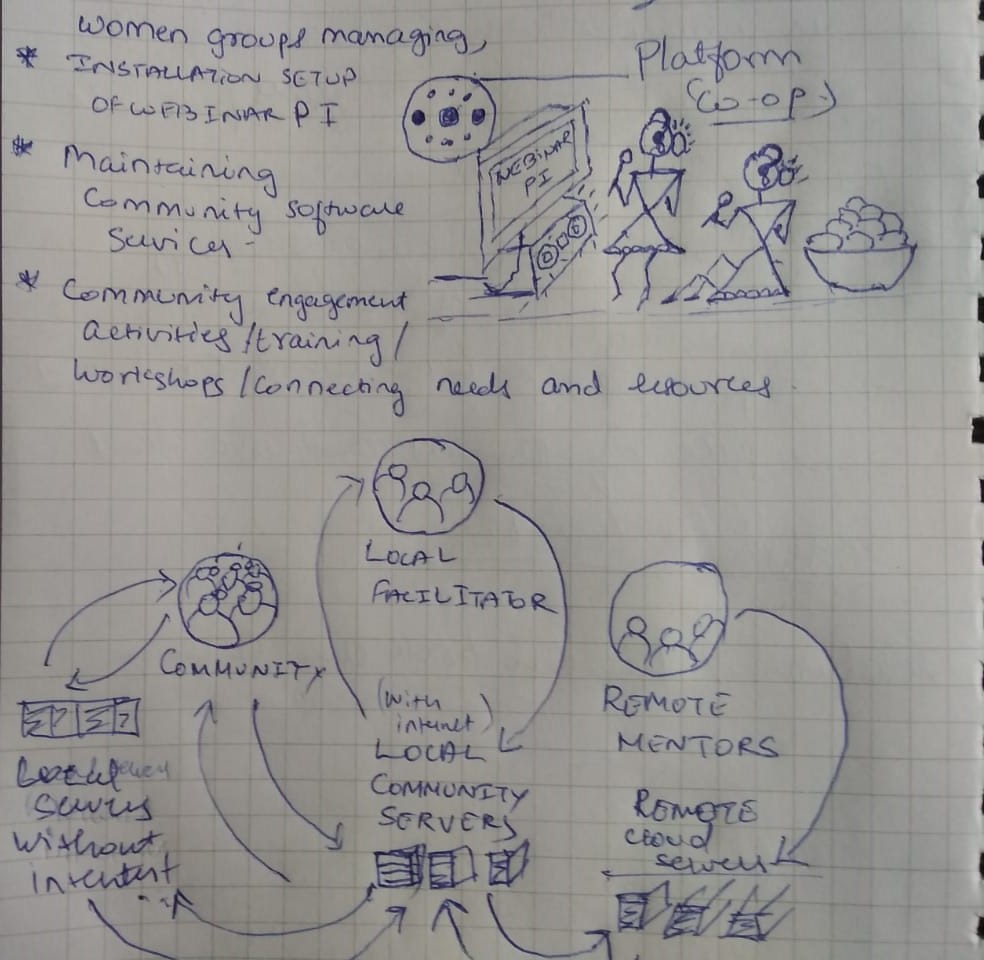 women groups managing,
* INSTALLATION SETUP
OF WEBINAR PI
* Maintaining
Community software
Services -
* Community engagement
activities/training/
workshops/connecting needs and resources.
Platform
(Co-op)
WEBINAR
PI
LOCAL
FACILITATOR
COMMUNITY
(with
internet)
LOCAL
COMMUNITY
SERVERS
Local
Servers
without
internet
REMOTE
MENTORS
REMOTE
cloud
servers